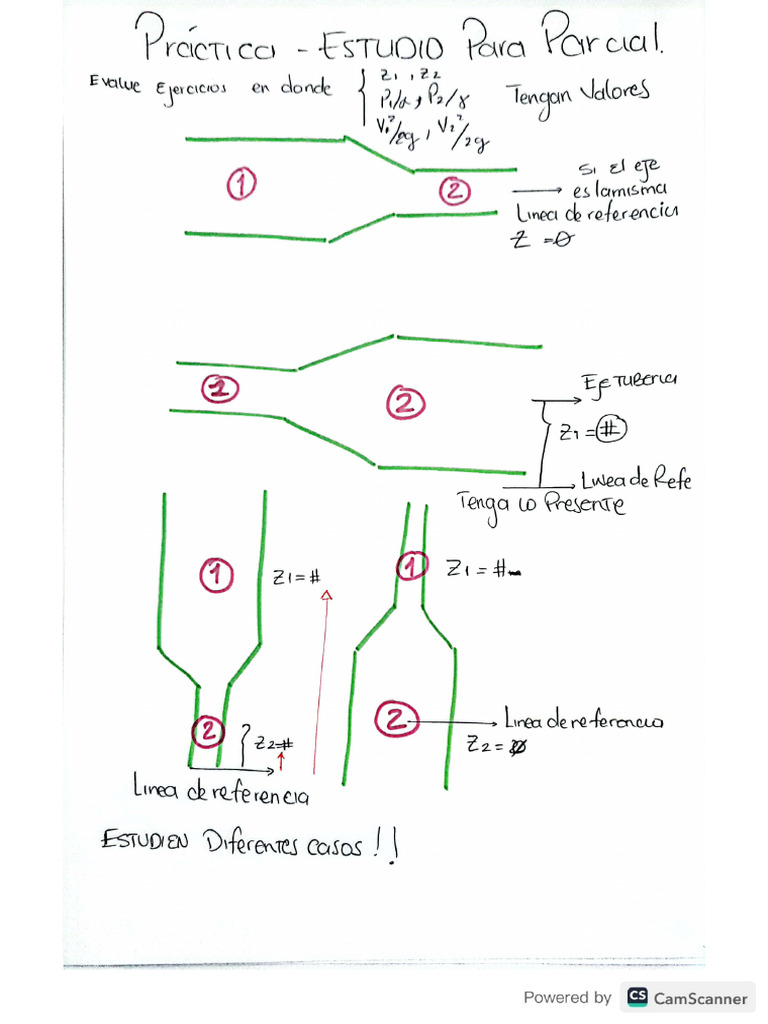 Práctica - ESTUDIO Para Parcial.
Evalue Ejercicios en donde { Z1, Z2
P1/γ, P2/γ
V1²/2g, V2²/2g
Tengan Valores
①
②
Si El eje
es la misma
Linea de referencia
Z = 0
②
②
Eje TUBERIA
Z1 = #
Linea de Refe
Tenga lo Presente
①
Z1 = #
①
Z1 = #
②
Z2 = #
Linea de referencia
②
Linea de referencia
Z2 = 0
ESTUDIEN Diferentes casos!!
Powered by CS CamScanner